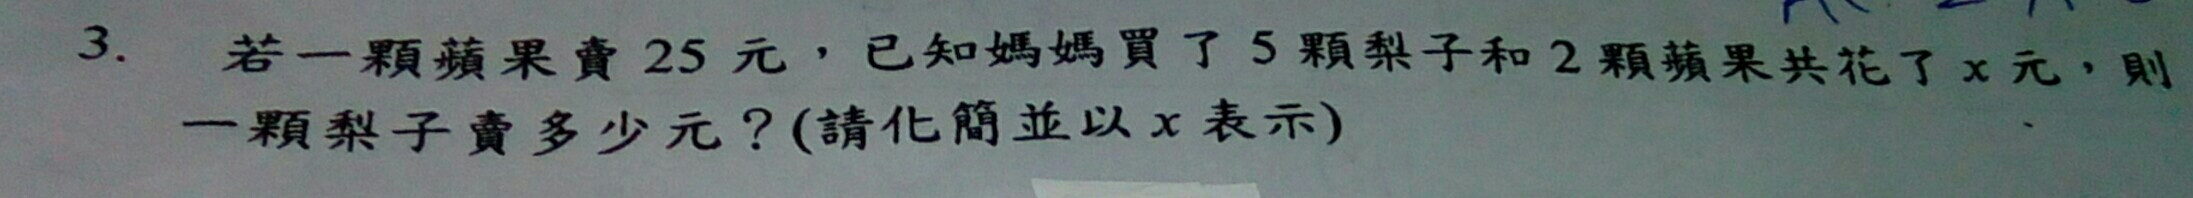 3. 若一顆蘋果賣 25 元，已知媽媽買了 5 顆梨子和 2 顆蘋果共花了 x 元，則
一顆梨子賣多少元？(請化簡並以 x 表示)